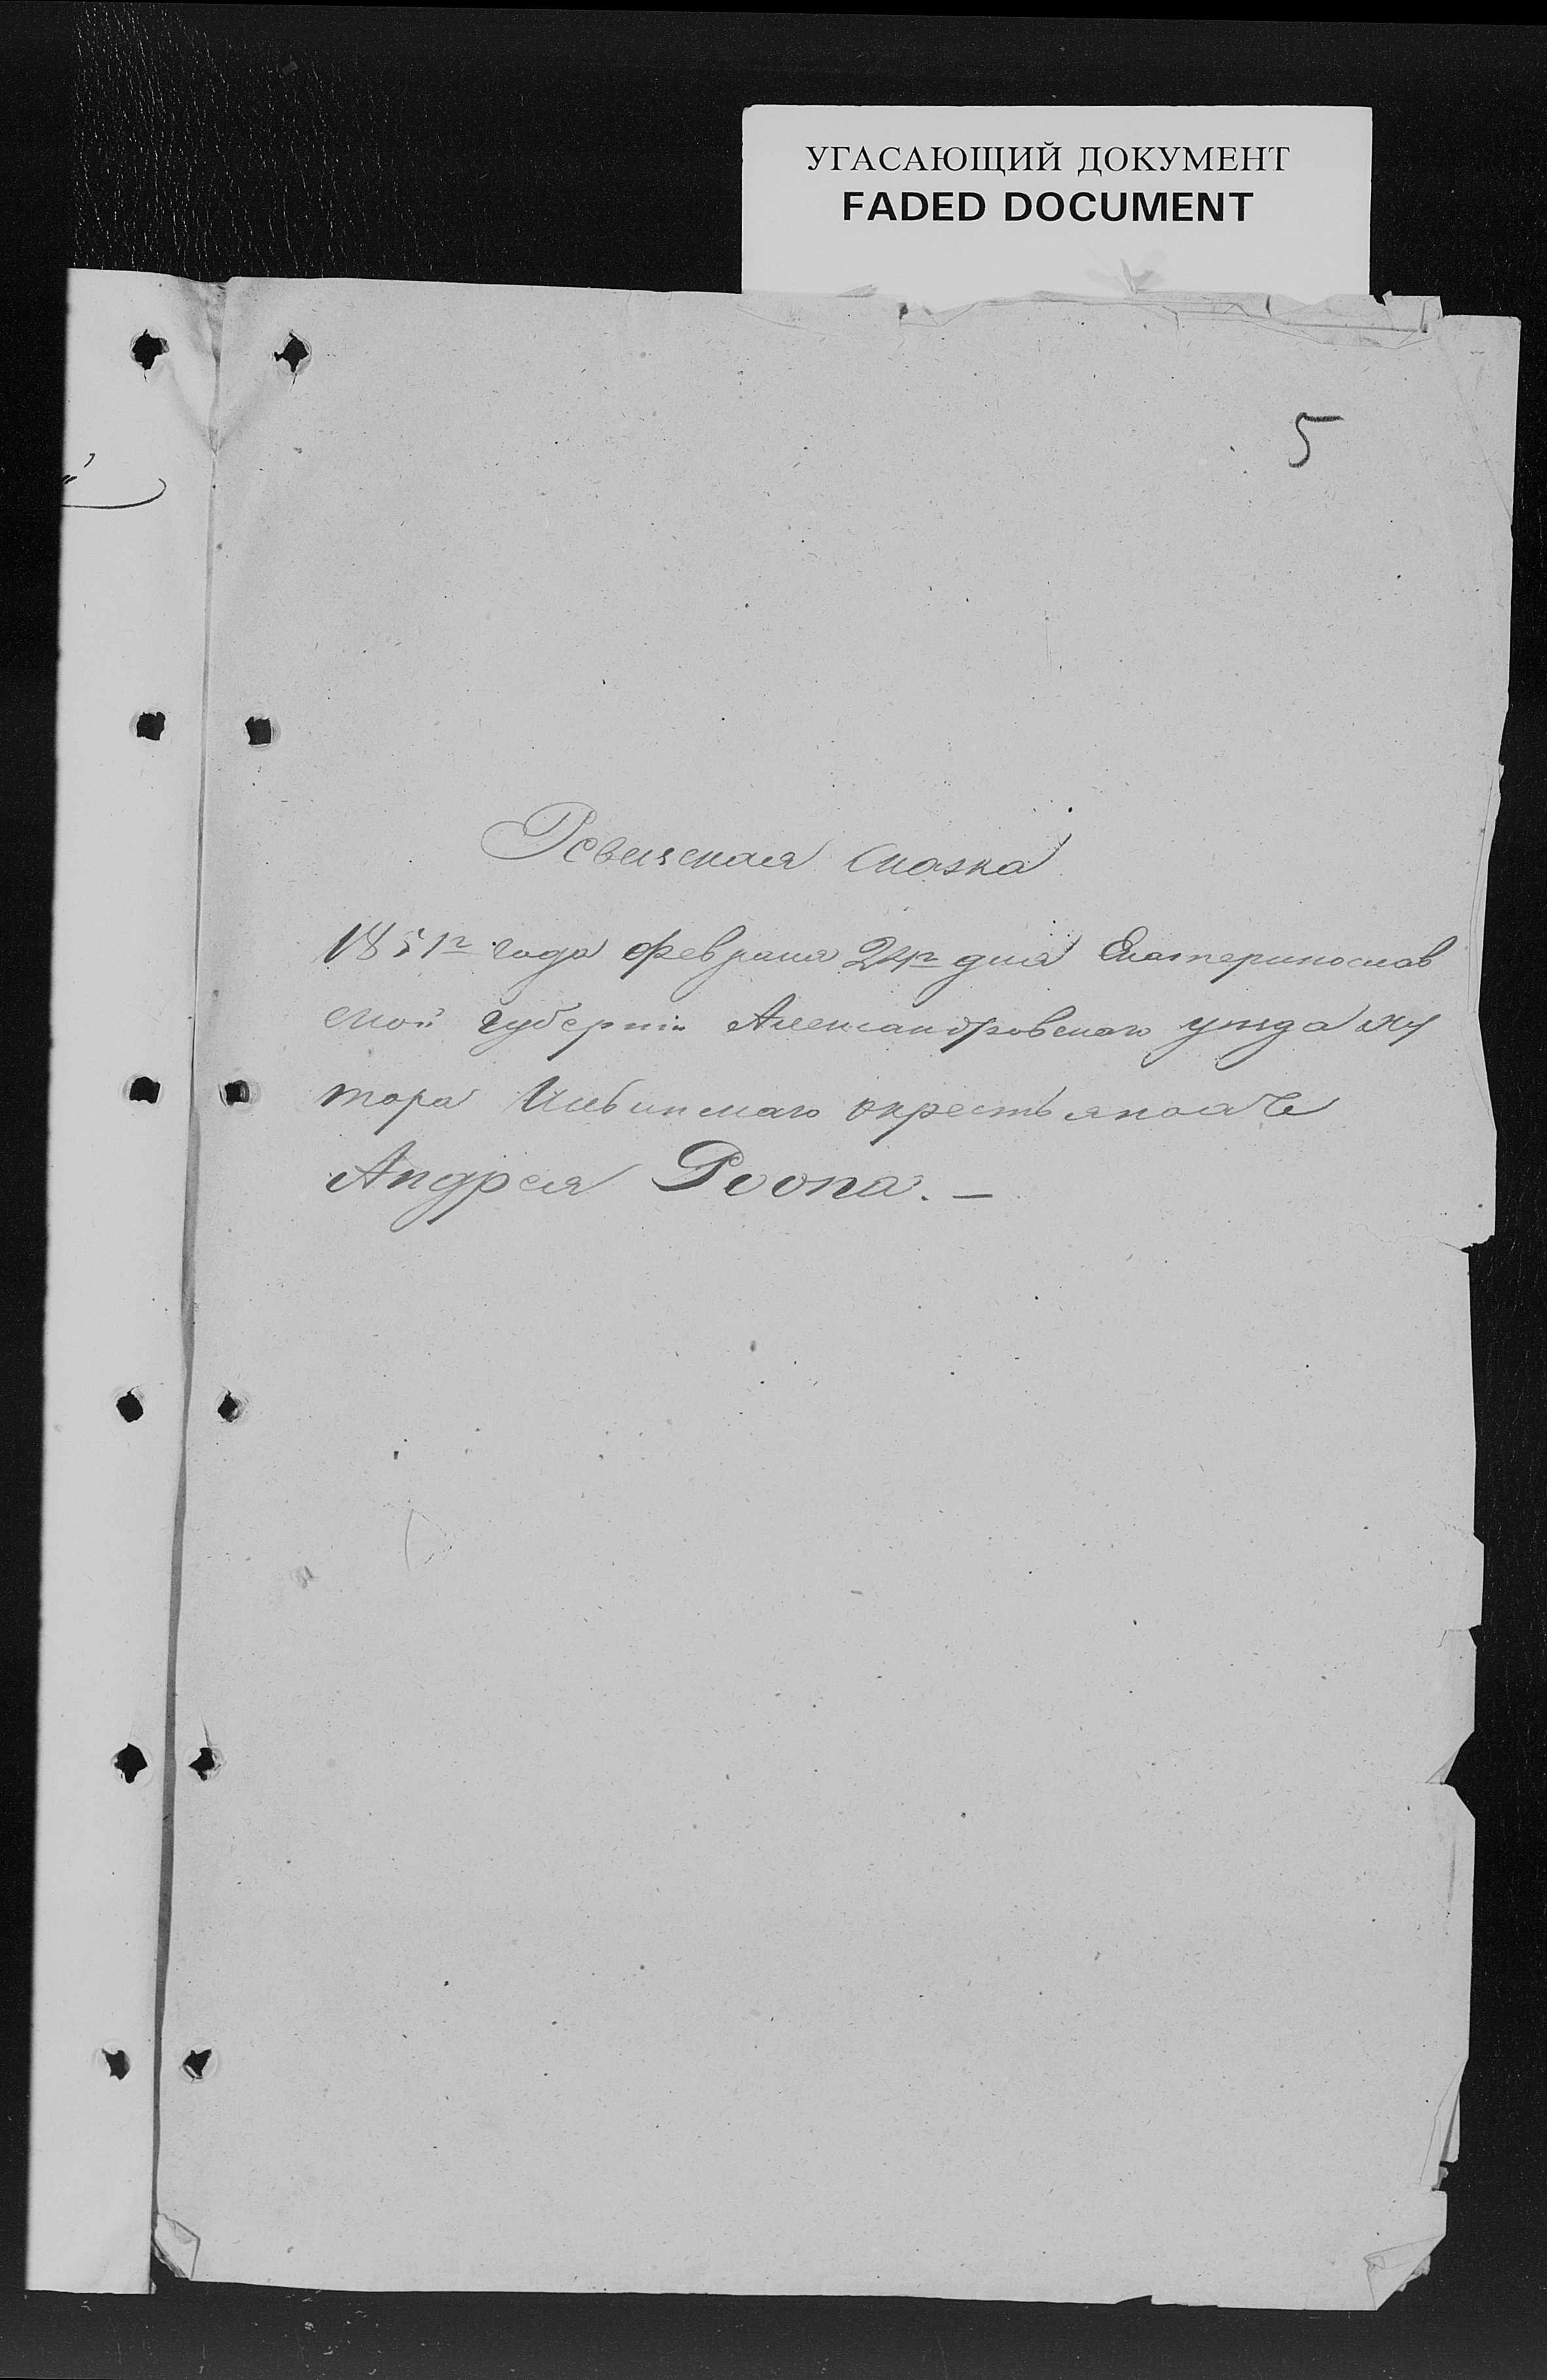 УГАСАЮЩИЙ ДОКУМЕНТ
FADED DOCUMENT
5
Ревизская сказка
1851го года февраля 24го дня Екатеринослав
ской губернiи Александровскаго уезда ху
тора
Андрея Роопа. —